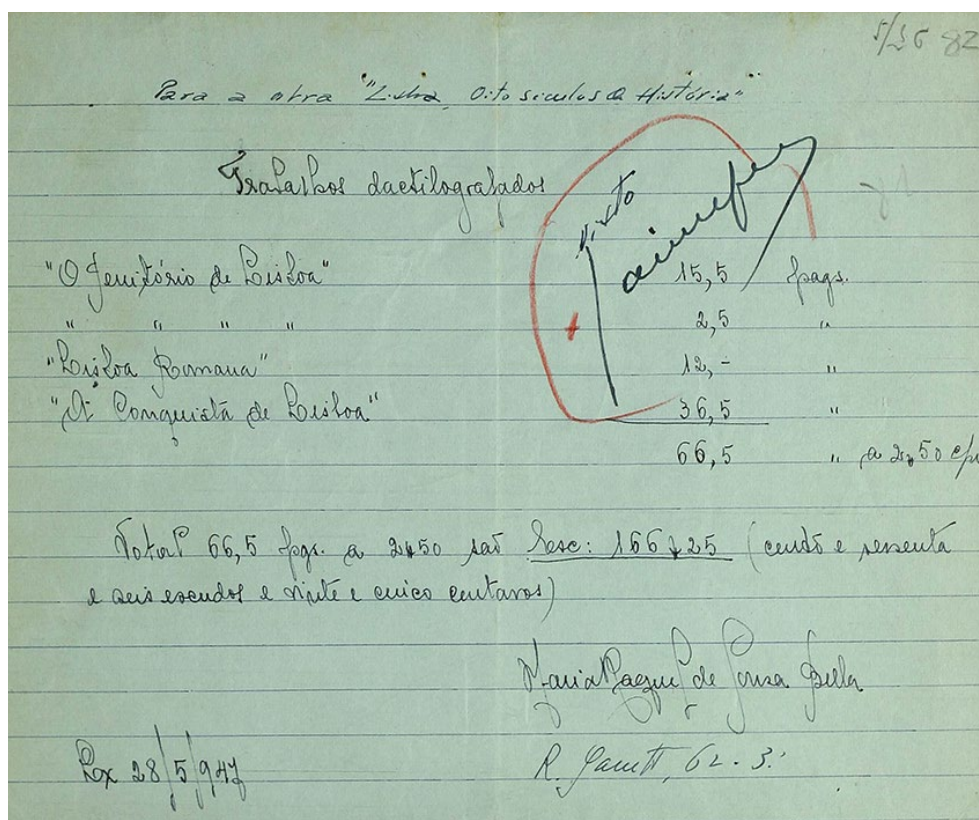 82
Para a obra "Lisboa, Oito séculos de História"
Trabalhos dactilografados
Visto
"O Território de Lisboa" 15,5 pags.
" " " " 2,5 "
"Lisboa Romana" 12,- "
"A Conquista de Lisboa" 36,5 "
66,5 " a 2$50 c/pg
Total 66,5 pgs. a 2$50 são Sesc: 166$25 (cento e sessenta
e seis escudos e vinte e cinco centavos)
Maria Raquel de Sousa
Lx 28/5/947
R. Garrett, 62 - 3.º